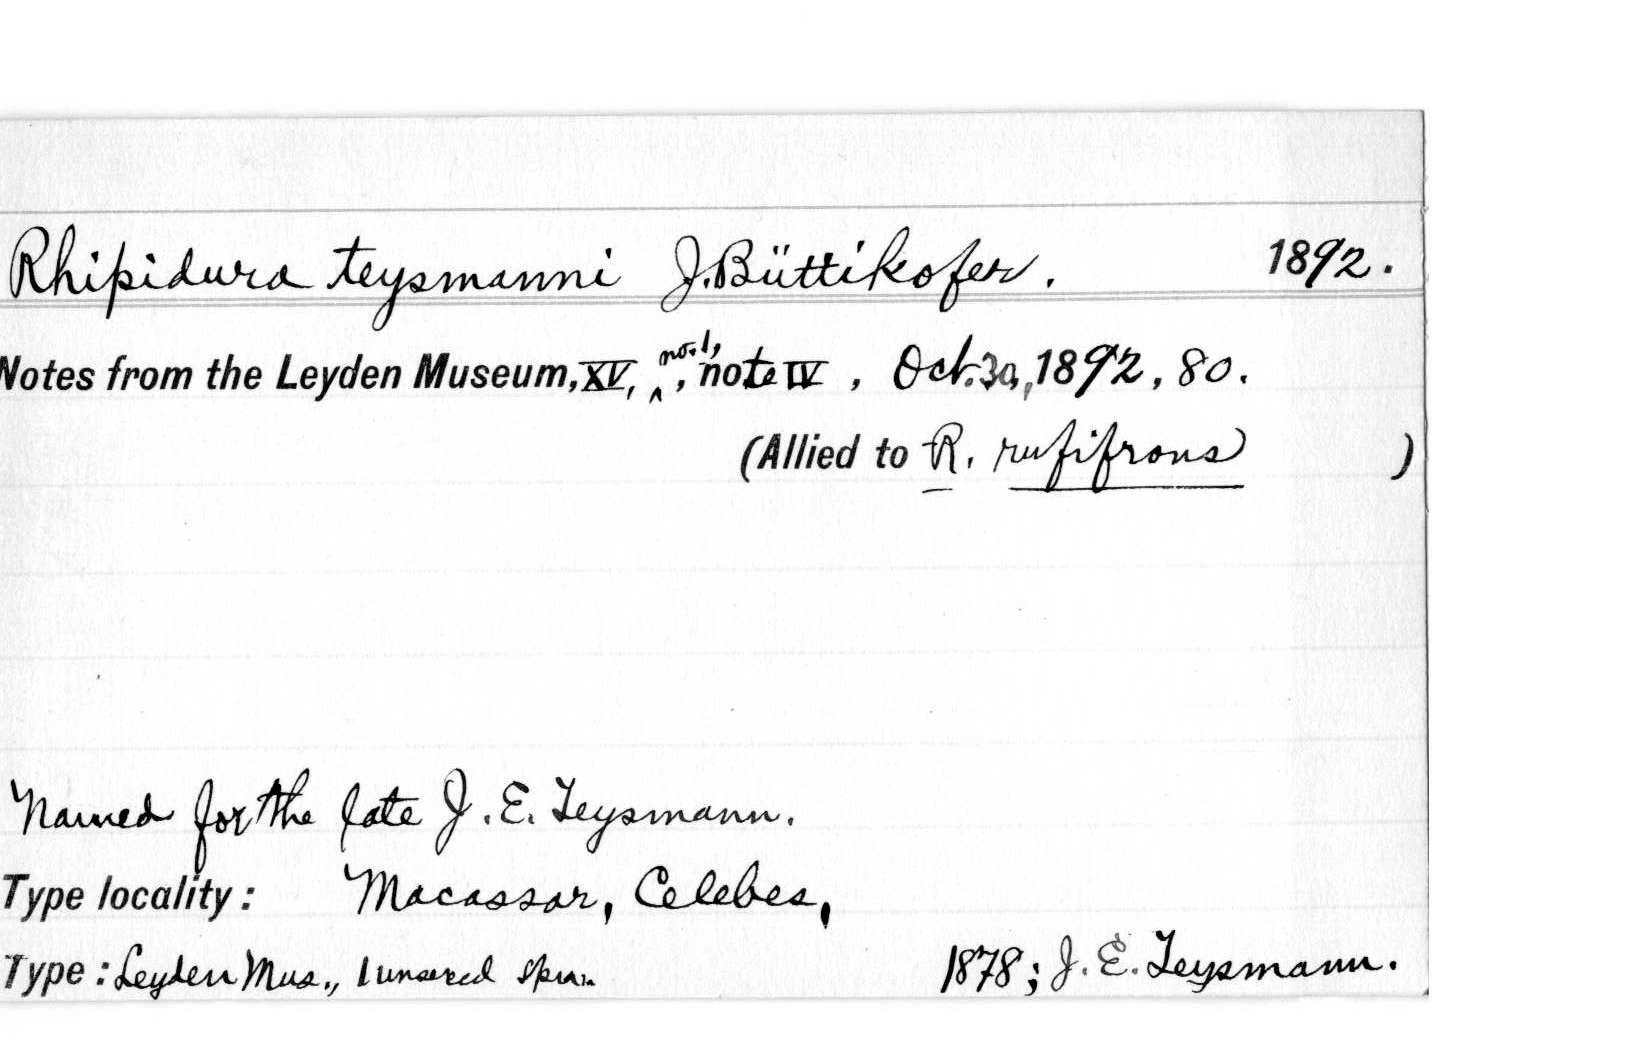 Rhipidura teysmanni J. Büttikofer. 1892.
Notes from the Leyden Museum, XV, no. 1, note IV, Oct. 30, 1892, 80.
(Allied to R. rufifrons )
Named for the late J. E. Teysmann.
Type locality: Macassar, Celebes,
Type: Leyden Mus., 1 unsexed spm. 1878; J. E. Teysmann.